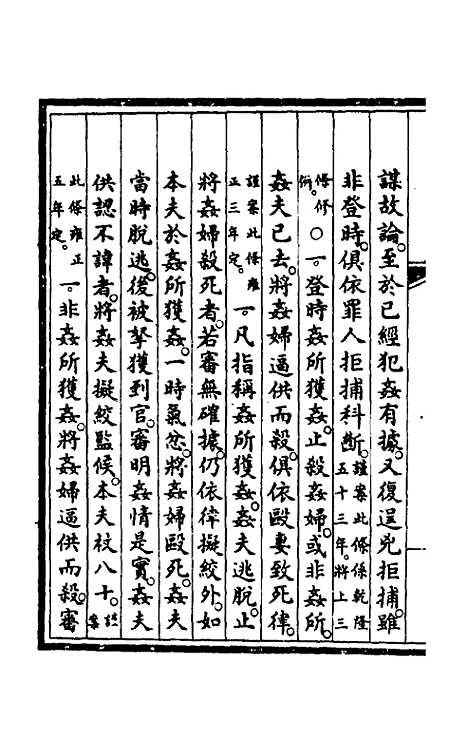 謀故論。至於已經犯姦有據。又復逞兇拒捕。雖
非登時。俱依罪人拒捕科斷。謹案此條係乾隆五十三年。將上三
條修併。○一。登時姦所獲姦。止殺姦婦。或非姦所。
姦夫已去。將姦婦逼供而殺。俱依毆妻致死律。
謹案此條雍正三年定。一。凡指稱姦所獲姦。姦夫逃脫。止
將姦婦殺死者。若審無確據。仍依律擬絞外。如
本夫於姦所獲姦。一時氣忿。將姦婦毆死。姦夫
當時脫逃。後被拏獲到官。審明姦情是實。姦夫
供認不諱者。將姦夫擬絞監候。本夫杖八十。謹案
此條雍正五年定。一。非姦所獲姦。將姦婦逼供而殺。審